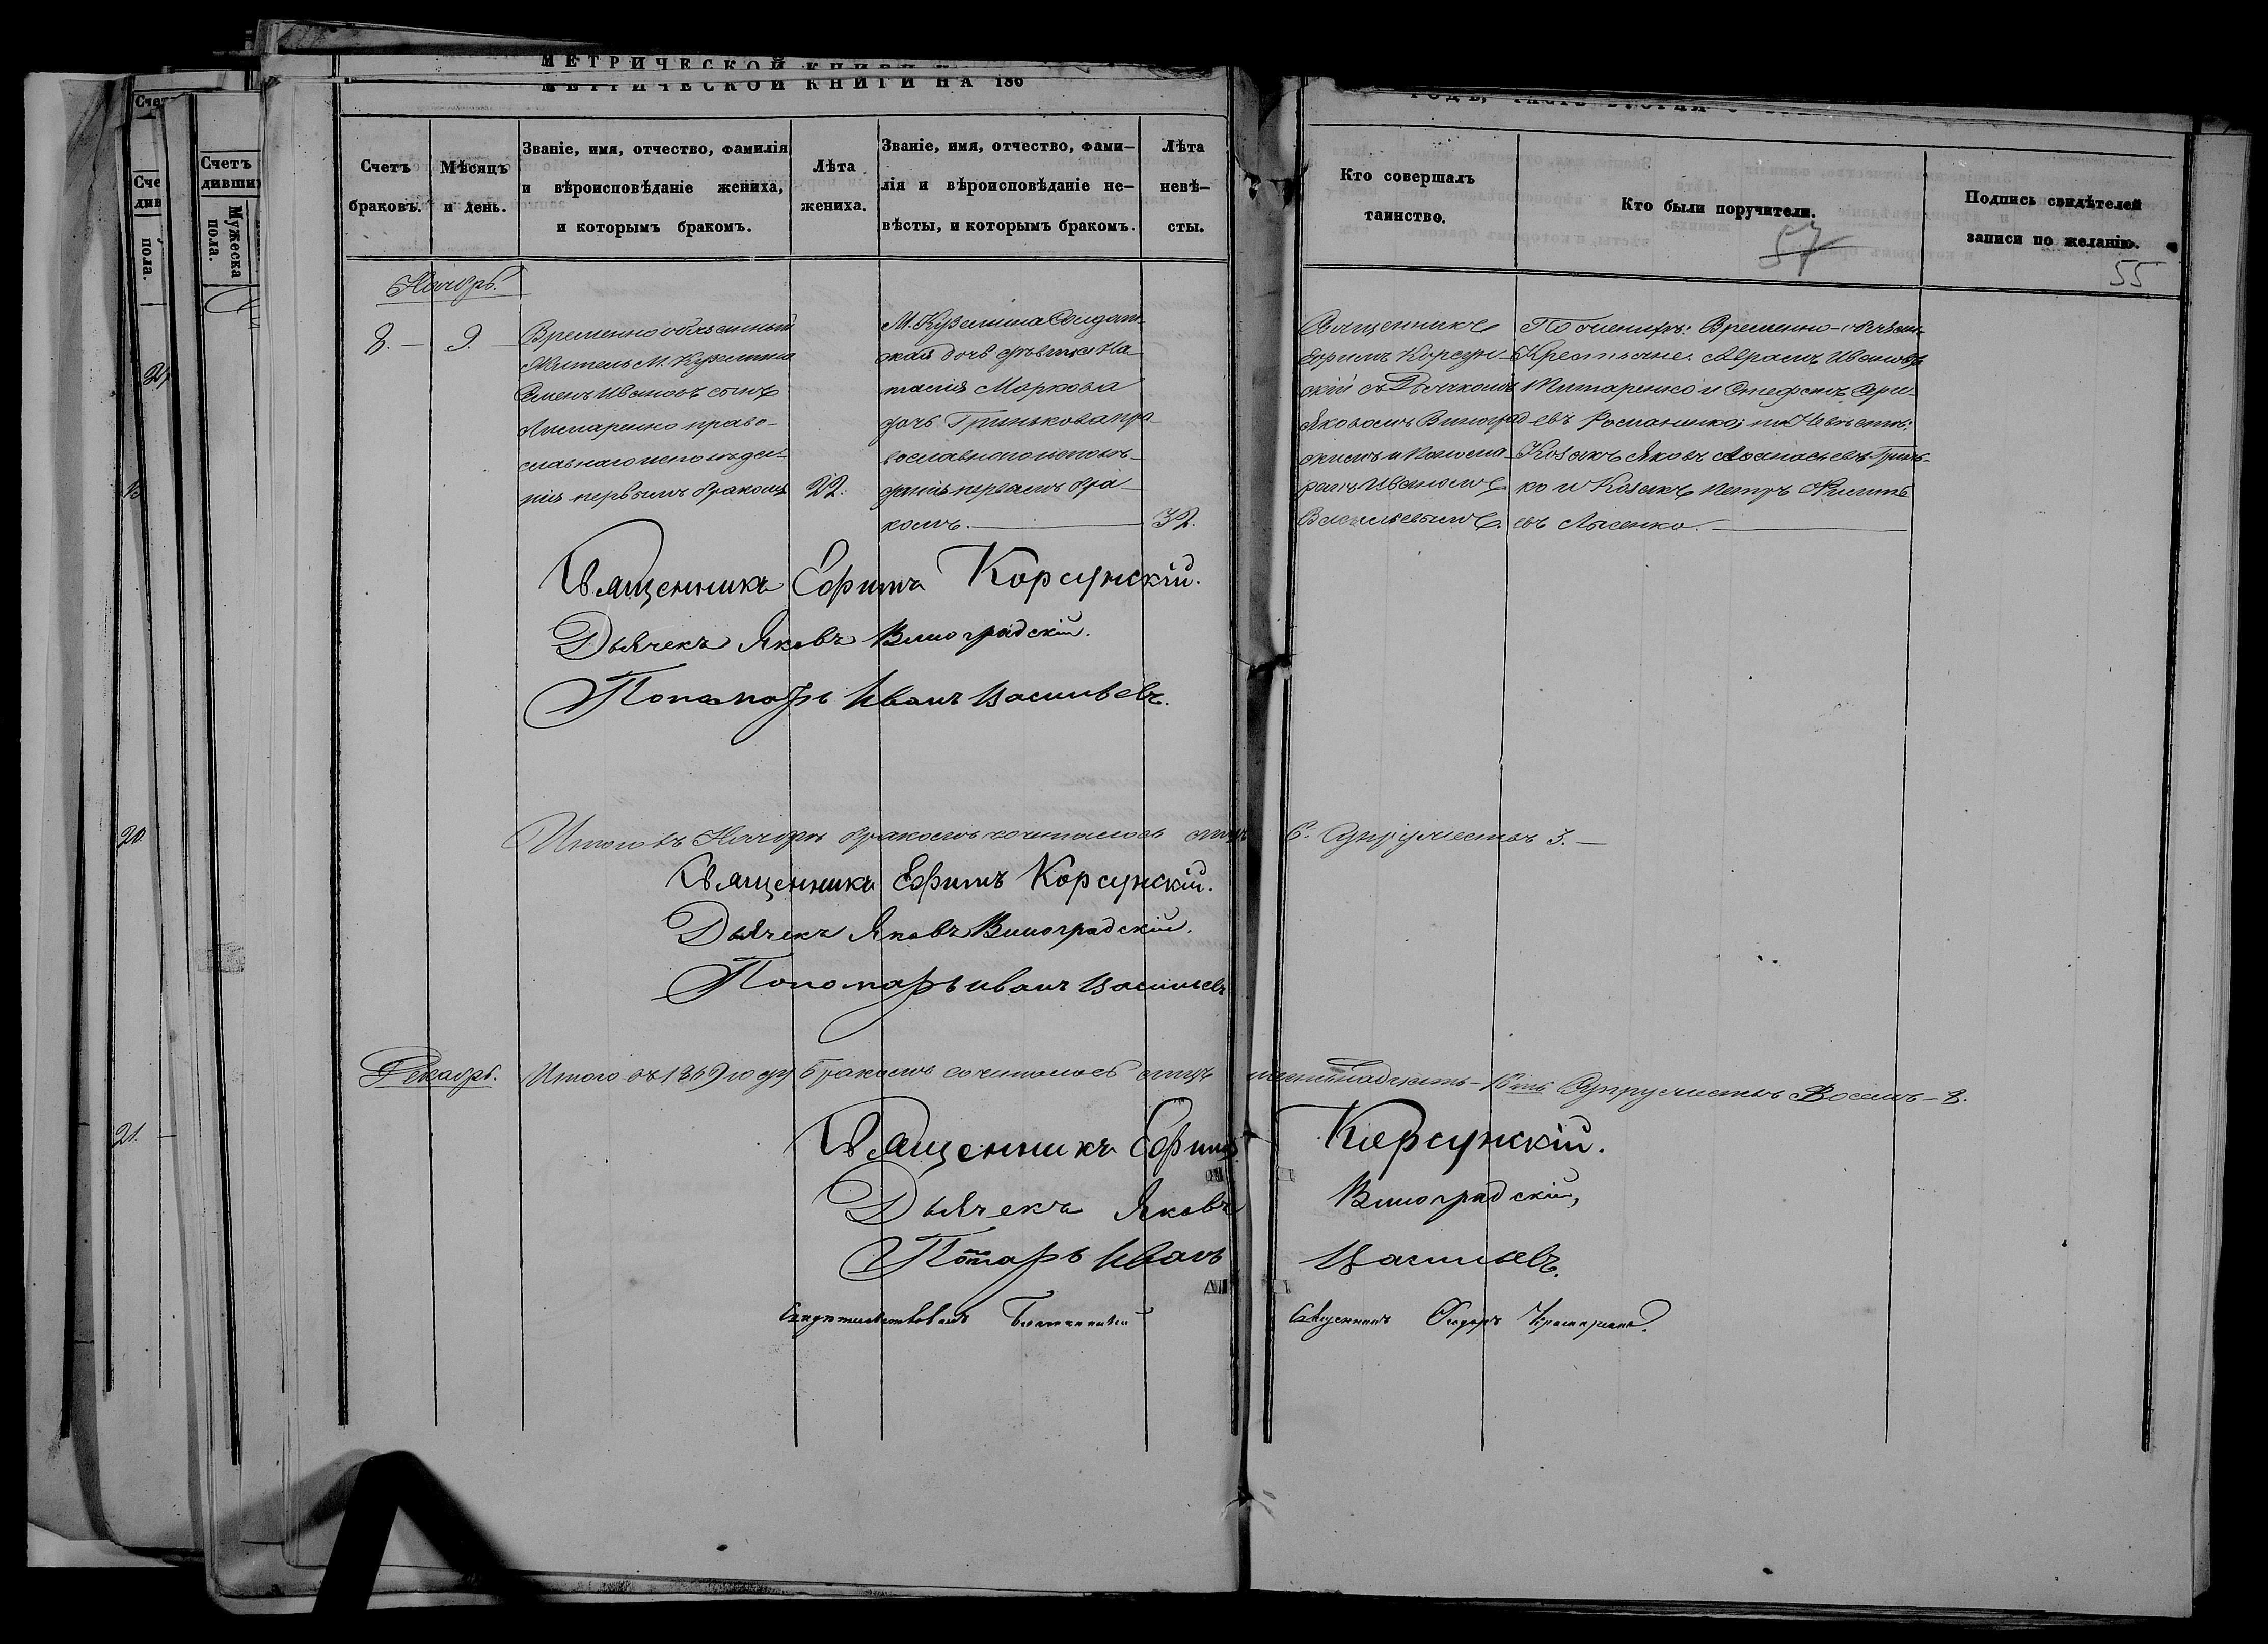 МЕТРИЧЕСКОЙ КНИГИ НА 186
Счетъ браковъ.
Мѣсяцъ и день.
Званіе, имя, отчество, фамилія
и вѣроисповѣданіе жениха,
и которымъ бракомъ.
Лѣта жениха.
Званіе, имя, отчество, фами-
лія и вѣроисповѣданіе не-
вѣсты, и которымъ бракомъ.
Лѣта невѣ-
сты.
Кто совершалъ
таинство.
Кто были поручители.
Подпись свидѣтелей
записи по желанію.
57
55
Ноябрь.
8. — 9. —
Временно обязанный
Житель М.
Ивановъ сынъ
право-
славнаго исповѣда-
нія первымъ бракомъ
22.
М. Солдат-
ская дочь дѣвица На-
талія Маркова
дочь Гринькова пра-
вославнаго исповѣ-
данія первымъ бра-
комъ.
32.
Священникъ
Ефримъ Корсун-
скій съ Дьячкомъ
Яковомъ Виноград
скимъ и Понома-
ремъ Иваномъ
Васильевымъ.
По женихѣ: Временно-обязан-
Крестьяне: Аврамъ Ивановъ
Титаренко и Стефанъ
евъ Романенко; по Невѣстѣ:
Козакъ Яковъ Аѳанасьевъ Гринь-
ко и Козакъ Петръ Филипп
евъ Лысенко.
Священникъ Ефримъ Корсунскій.
Дьячекъ Яковъ Виноградскій.
Пономарь Иванъ Васильевъ.
Итого въ Ноябрѣ бракомъ сочиталось лицъ 6. Супружествъ 3. —
Священникъ Ефримъ Корсунскій.
Дьячекъ Яковъ Виноградскій.
Пономарь Иванъ Васильевъ
Декабрь.
Итого въ 1869 году бракомъ сочиталось лицъ шестнадцать - 16ть Супружествъ Восемь - 8.
Священникъ Ефримъ Корсунскій.
Дьячекъ Яковъ Виноградскій,
Пономарь Иванъ Васильевъ.
Свидѣтельствовалъ Благочинный Священникъ Ѳедоръ
Счетъ
дивши
Мужеска
пола.
Сче
див
пола.
20.
21. —